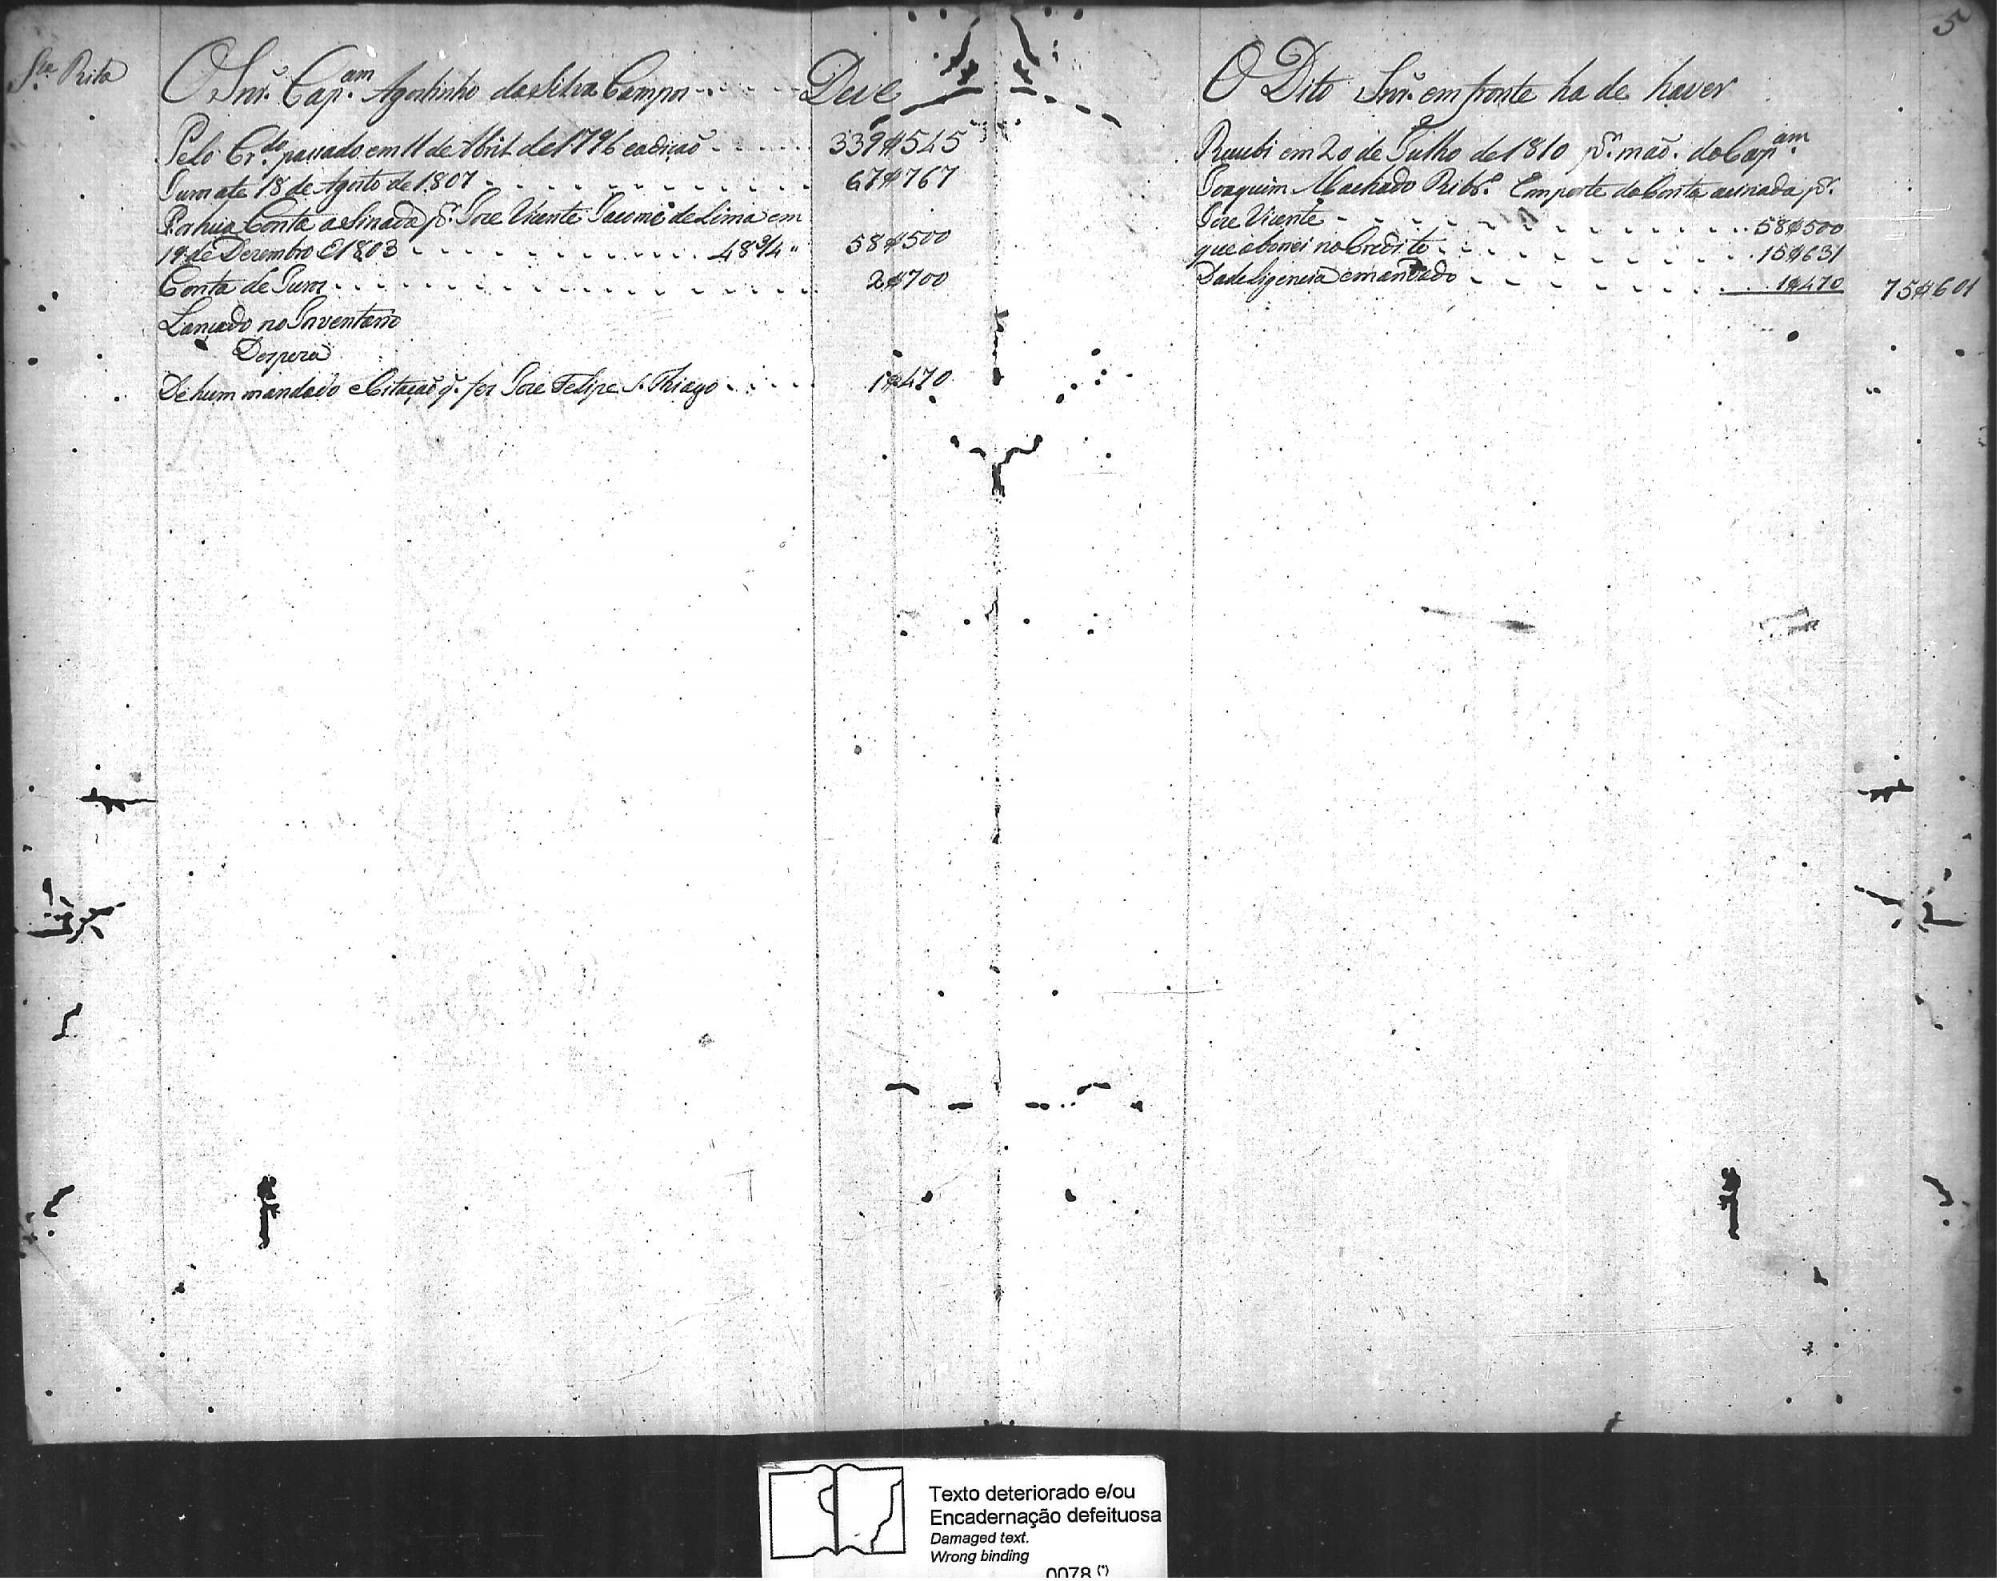 5
S.ta Rita
O Snr. Cap.am Agostinho da Silva Campos Deve
Pelo Cr.do passado em 11 de Abril de 1796 eadicaõ 339$545
Juro ate 18 de Agosto de 1807 67$767
Por hua Conta aSinada p.r Joze Vicente Jacome de Lima em
19 de Dezembro E 1803 48 3/4 58$500
Conta de Juros 2$700
Lancado no Inventario
Despeza
De hum mandado e Citaçaõ q. fez Joze Felipe S. Thiago 1$470
O Dito Snr. em fronte ha de haver
Recebi em 20 de Julho de 1810 p.r maõ. do Cap.am
Joaquim Machado Rib.o Emporte da Conta asinada p.r
Joze Vicente 58$500
que abonei no Credito 15$631
Da deligencia e mandado 1$470 75$601
Texto deteriorado e/ou
Encadernação defeituosa
Damaged text.
Wrong binding
0078 (*)